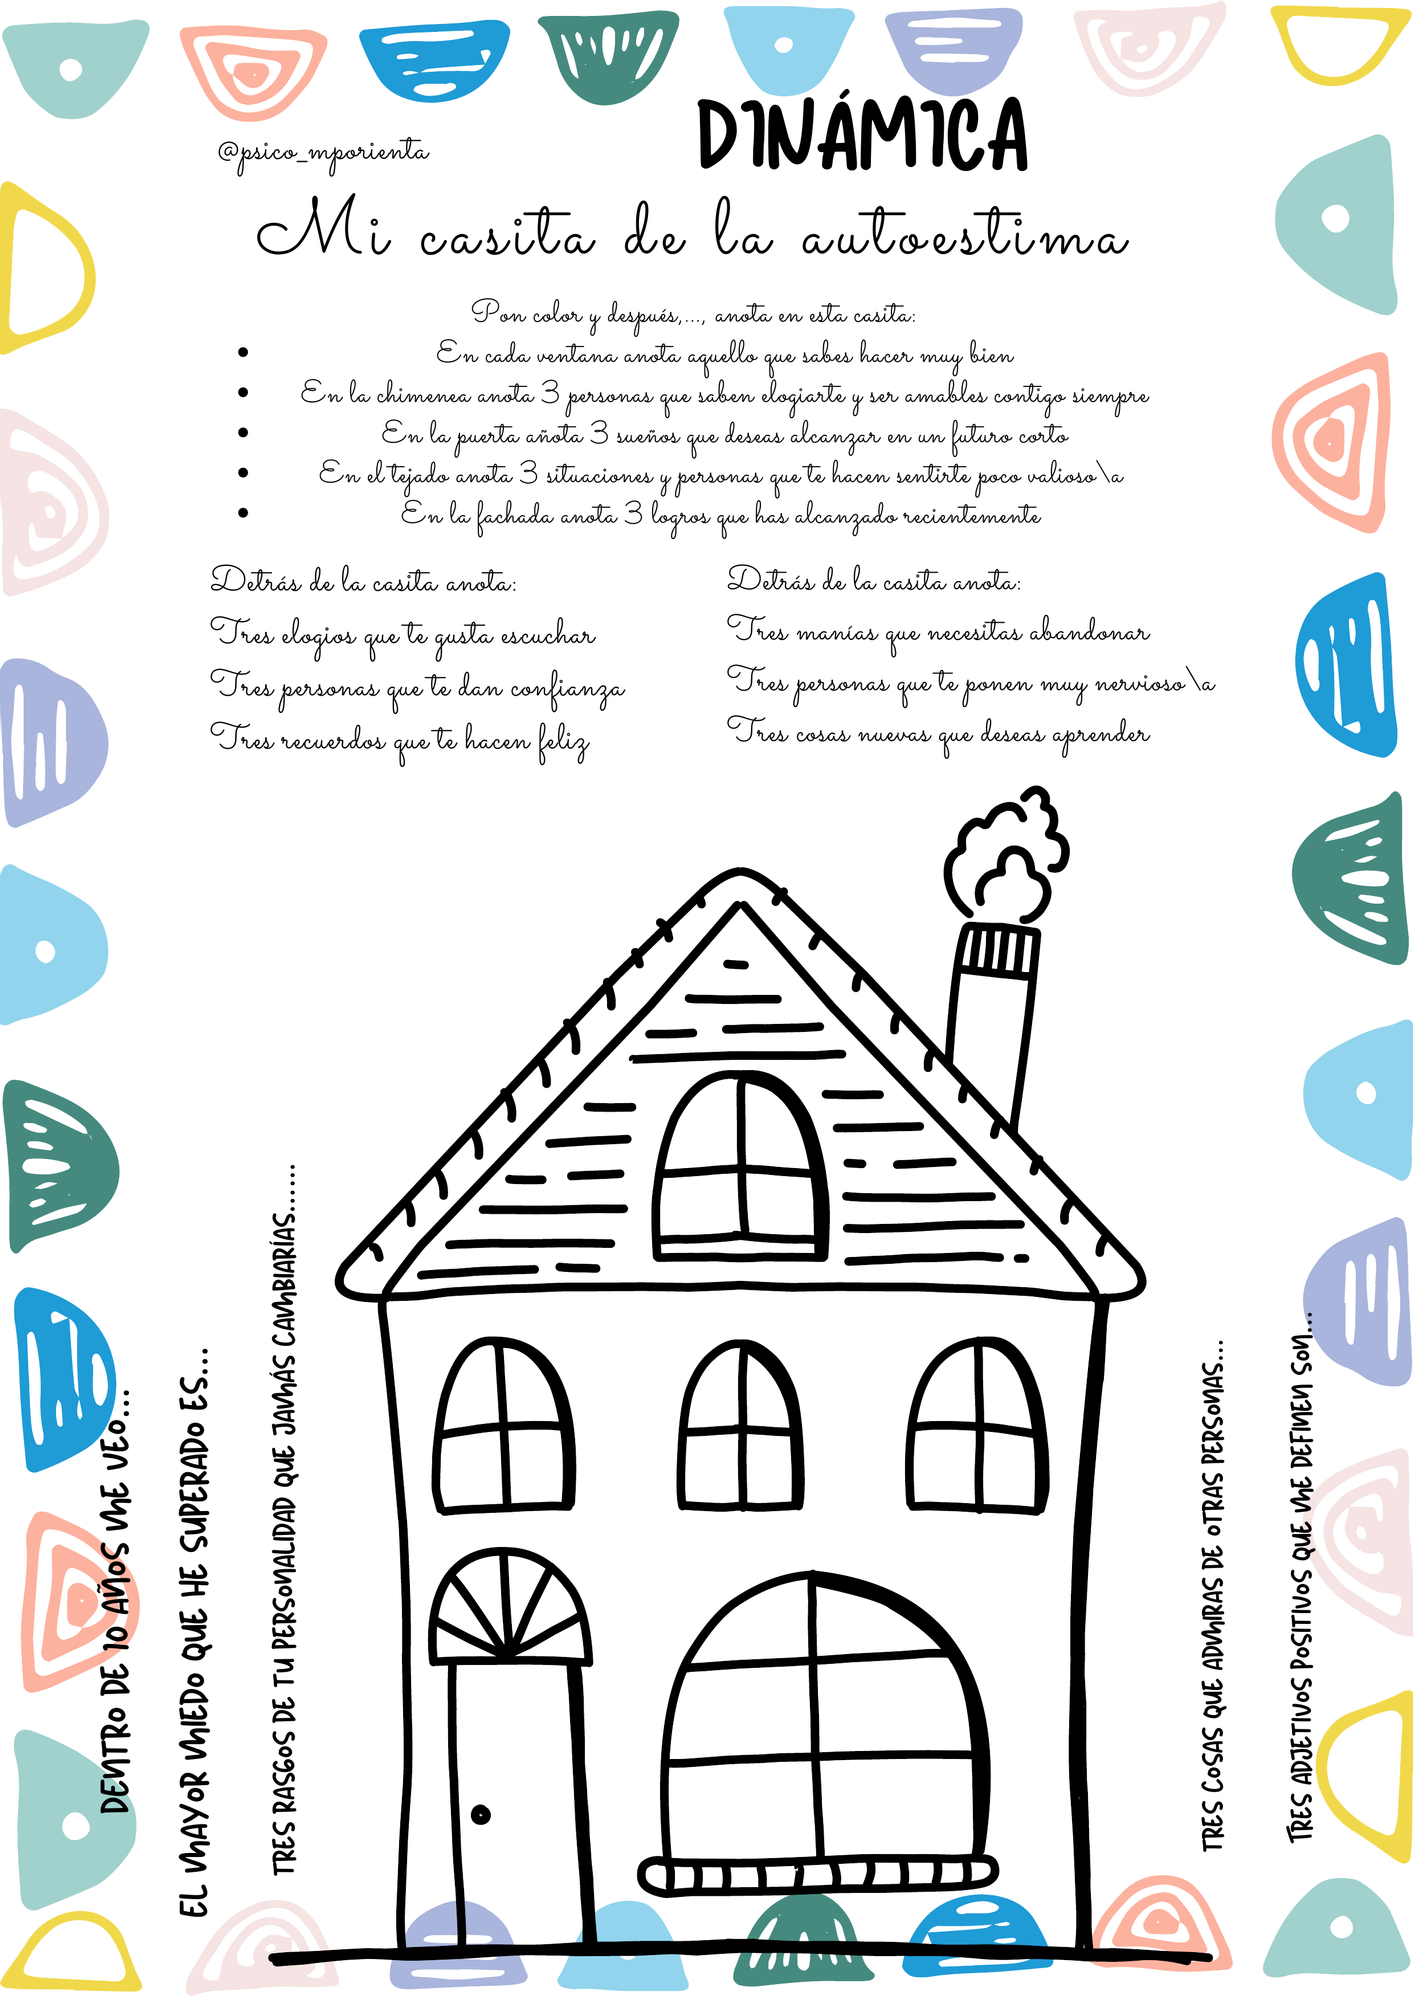 DINÁMICA
@psico_mporienta
Mi casita de la autoestima
Pon color y después,..., anota en esta casita:
• En cada ventana anota aquello que sabes hacer muy bien
• En la chimenea anota 3 personas que saben elogiarte y ser amables contigo siempre
• En la puerta añota 3 sueños que deseas alcanzar en un futuro corto
• En el tejado anota 3 situaciones y personas que te hacen sentirte poco valioso\a
• En la fachada anota 3 logros que has alcanzado recientemente
Detrás de la casita anota:
Tres elogios que te gusta escuchar
Tres personas que te dan confianza
Tres recuerdos que te hacen feliz
Detrás de la casita anota:
Tres manías que necesitas abandonar
Tres personas que te ponen muy nervioso\a
Tres cosas nuevas que deseas aprender
DENTRO DE 10 AÑOS ME VEO...
EL MAYOR MIEDO QUE HE SUPERADO ES...
TRES RASGOS DE TU PERSONALIDAD QUE JAMÁS CAMBIARÍAS......
TRES COSAS QUE ADMIRAS DE OTRAS PERSONAS...
TRES ADJETIVOS POSITIVOS QUE ME DEFINEN SON...